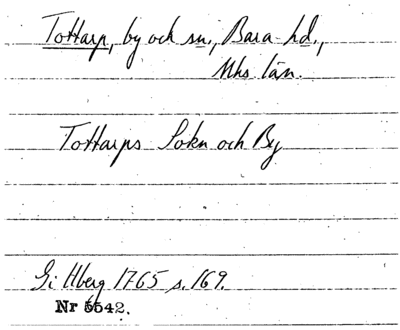 Tottarp, by och sn, Bara hd.,
Mhs län.
Tottarps Sokn och By
Gillberg 1765 s. 169.
Nr 5542.